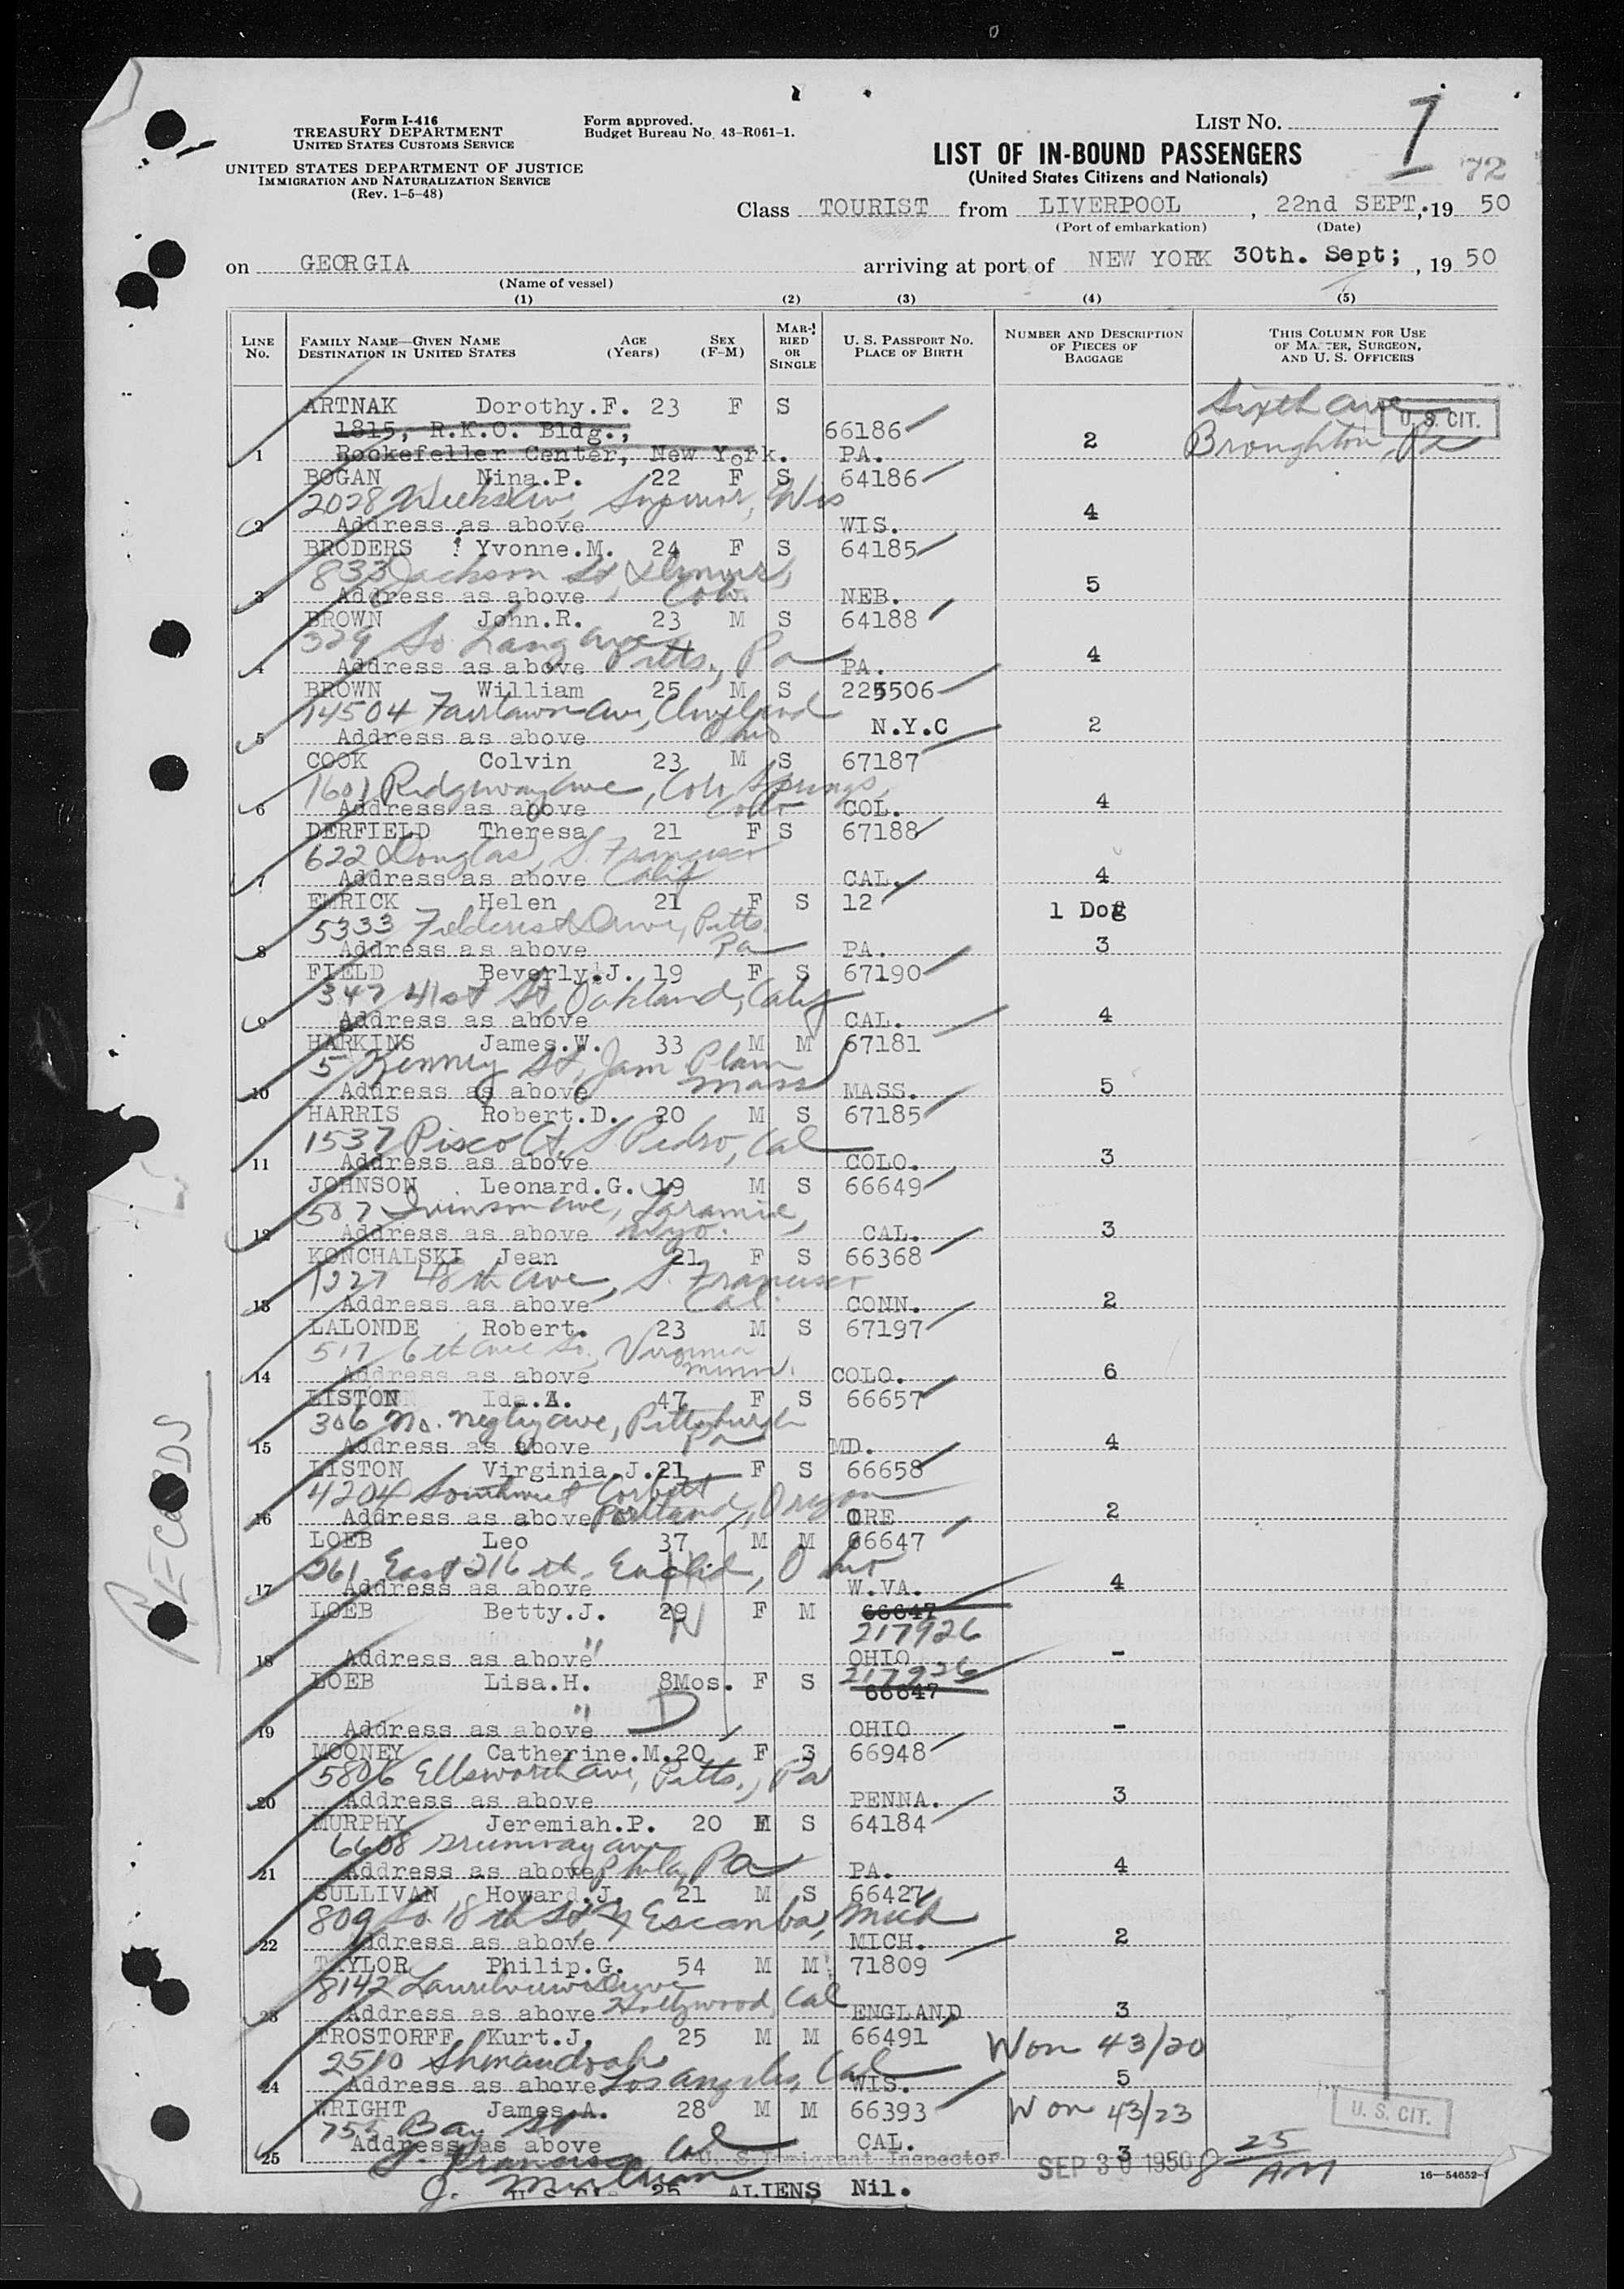 Form I-416
TREASURY DEPARTMENT
UNITED STATES CUSTOMS SERVICE
UNITED STATES DEPARTMENT OF JUSTICE
IMMIGRATION AND NATURALIZATION SERVICE
(Rev. 1-5-48)
Form approved.
Budget Bureau No. 43-R061-1.
LIST NO.
1
72
LIST OF IN-BOUND PASSENGERS
(United States Citizens and Nationals)
Class TOURIST from LIVERPOOL, 22nd SEPT, 19 50
(Port of embarkation) (Date)
on GEORGIA arriving at port of NEW YORK 30th. Sept; , 19 50
(Name of vessel)
(1) (2) (3) (4) (5)
LINE NO. FAMILY NAME—GIVEN NAME DESTINATION IN UNITED STATES AGE (Years) SEX (F-M) MARRIED OR SINGLE U. S. PASSPORT NO. PLACE OF BIRTH NUMBER AND DESCRIPTION OF PIECES OF BAGGAGE THIS COLUMN FOR USE OF MASTER, SURGEON, AND U. S. OFFICERS
ARTNAK Dorothy.F. 23 F S Sixth ave U. S. CIT.
1815, R.K.O. Bldg., 66186
1 Rockefeller Center, New York. PA. 2 Broughton Pa
BOGAN Nina.P. 22 F S 64186
2028 Weeks Ave, Superior, Wis
2 Address as above WIS. 4
BRODERS Yvonne.M. 24 F S 64185
833 Jackson St, Denver,
3 Address as above Colo. NEB. 5
BROWN John.R. 23 M S 64188
329 So Lang Ave
4 Address as above Pitts., Pa PA. 4
BROWN William 25 M S 225506
14504 Fairlawn Ave, Cleveland
5 Address as above Ohio N.Y.C 2
COOK Colvin 23 M S 67187
1601 Ridgeway ave, Colo Springs,
6 Address as above Colo COL. 4
DERFIELD Theresa 21 F S 67188
622 Douglas, S. Francisco
7 Address as above Calif CAL. 4
EMRICK Helen 21 F S 12 1 Dog
5333 Drive, Pitts.
8 Address as above Pa PA. 3
FIELD Beverly.J. 19 F S 67190
347 41st St, Oakland, Calif
9 Address as above CAL. 4
HARKINS James.W. 33 M M 67181
5 Kenney St, Jam Plain
10 Address as above Mass MASS. 5
HARRIS Robert.D. 20 M S 67185
1537 Pisco Ct, S Pedro, Cal
11 Address as above COLO. 3
JOHNSON Leonard.G. 19 M S 66649
507 Ivinson ave, Laramie,
12 Address as above Wyo. CAL. 3
KONCHALSKI Jean 21 F S 66368
1227 48th ave, S. Francisco
13 Address as above Cal. CONN. 2
LALONDE Robert. 23 M S 67197
517 6th ave So., Virginia
14 Address as above Minn. COLO. 6
LISTON Ida.A. 47 F S 66657
306 No. Negley ave, Pittsburgh
15 Address as above Pa MD. 4
LISTON Virginia.J. 21 F S 66658
4204 Southwest Corbett
16 Address as above Portland, Oregon ORE 2
LOEB Leo 37 M M 66647
261 East 216 th, Euclid, Ohio
17 Address as above W.VA. 4
LOEB Betty.J. 29 F M 66647
217926
18 Address as above " OHIO -
LOEB Lisa.H. 8Mos. F S 217926
66647
19 Address as above " OHIO -
MOONEY Catherine.M. 20 F S 66948
5806 Ellsworth ave, Pitts., Pa
20 Address as above PENNA. 3
MURPHY Jeremiah.P. 20 M S 64184
6608 ave
21 Address as above Phila, Pa PA. 4
SULLIVAN Howard.J. 21 M S 66427
809 So. 18th St, Escanba, Mich
22 Address as above MICH. 2
TAYLOR Philip.G. 54 M M 71809
8142 Laurelview Drive
23 Address as above Hollywood, Cal ENGLAND 3
TROSTORFF Kurt.J. 25 M M 66491 Won 43/20
2510 Shenandoah
24 Address as above Los Angeles, Cal WIS. 5
WRIGHT James.A. 28 M M 66393 Won 43/23 U. S. CIT.
755 Bay St
25 Address as above CAL. 3
S. Francisco Cal
U. S. Immigrant Inspector SEP 30 1950 8 25 AM
16—54652-1
25 ALIENS Nil.
RECORDS